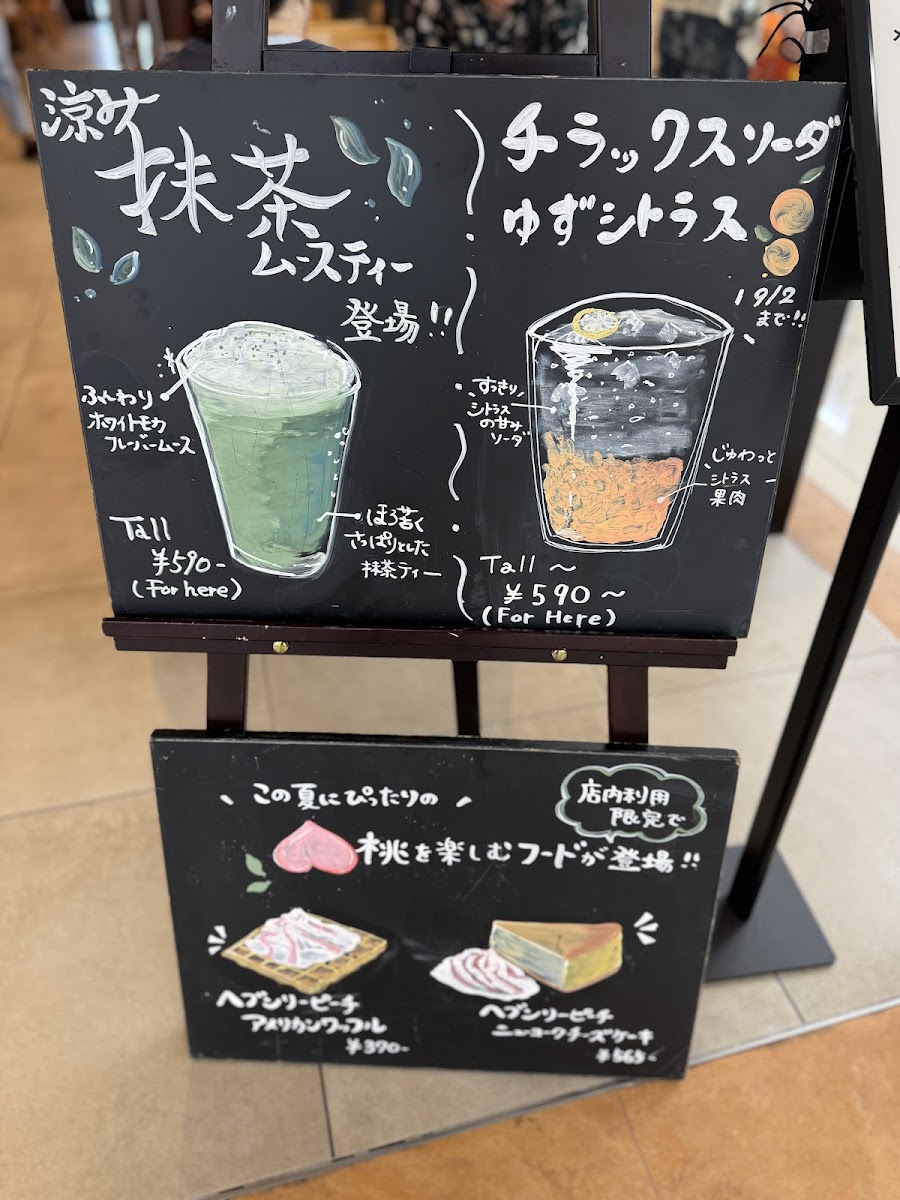 涼み
抹茶
ムースティー
登場!!
ふんわり
ホワイトモカ
フレーバームース
ほろ苦く
さっぱりとした
抹茶ティー
Tall
¥590-
(For here)
チラックスソーダ
ゆずシトラス
9/2
まで!!
すっきり
シトラス
の甘み
ソーダ
じゅわっと
シトラス
果肉
Tall ~
¥590~
(For Here)
この夏にぴったりの
店内利用
限定で
桃を楽しむフードが登場!!
ヘブンリーピーチ
アメリカンワッフル
¥370-
ヘブンリーピーチ
ニューヨークチーズケーキ
¥565-